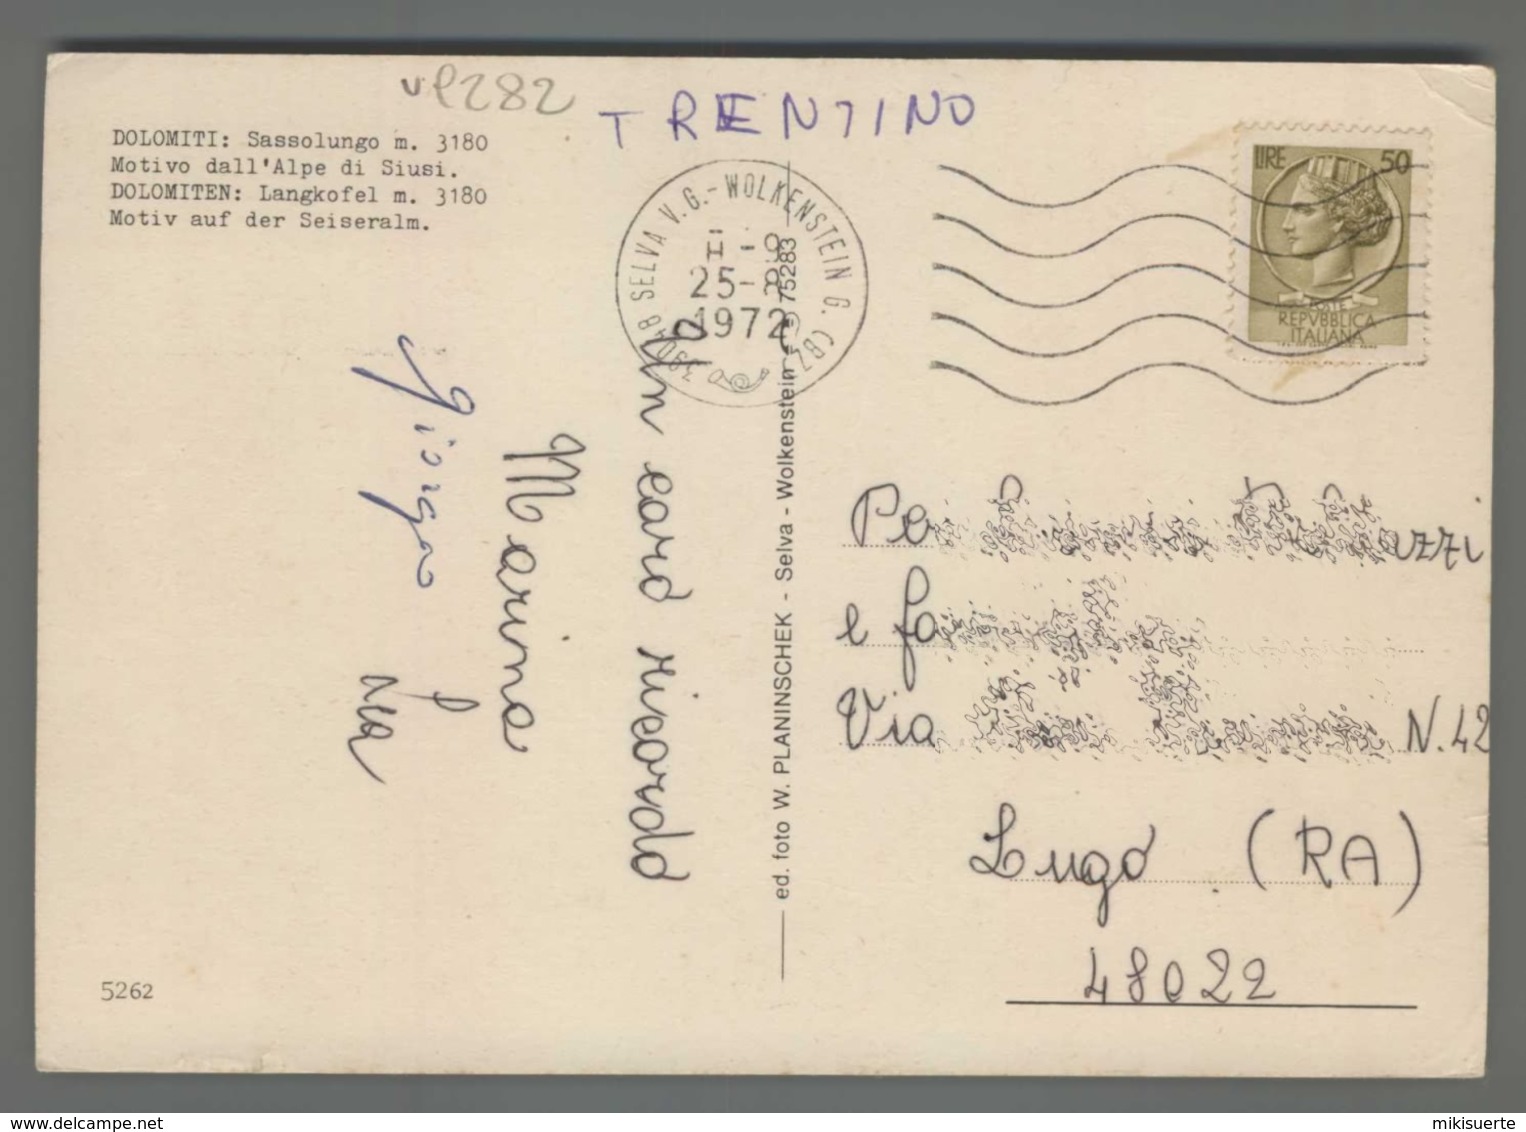 VP282
TRENTINO
DOLOMITI: Sassolungo m. 3180
Motivo dall'Alpe di Siusi.
DOLOMITEN: Langkofel m. 3180
Motiv auf der Seiseralm.
39048 SELVA V.G.-WOLKENSTEIN G. (BZ)
25-8
1972
LIRE 50
POSTE
REPVBBLICA
ITALIANA
Un caro ricordo
Marina
Giorgio
Lia
ed. foto W. PLANINSCHEK - Selva - Wolkenstein
75283
e fa
Via N.42
Lugo (RA)
48022
5262
delcampe.net
mikisuerte